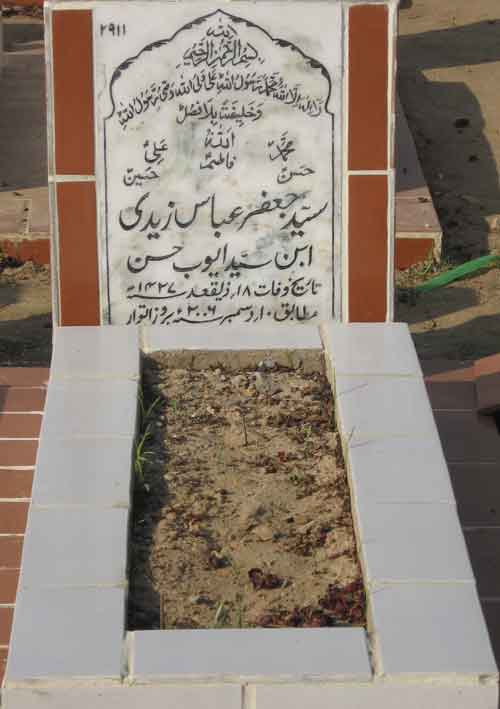 ۲۹۱۱
بسم اللہ الرحمن الرحیم
لا الہ الا اللہ محمد رسول اللہ علی ولی اللہ وصی رسول اللہ
وخلیفتہ بلا فصل
محمدؐ اللہ علیؑ
حسنؑ فاطمہؑ حسینؑ
سید جعفر عباس زیدی
ابن سید ایوب حسن
تاریخ وفات ۱۸؍ ذیقعد ۱۴۲۷ھ
مطابق ۱۰؍ دسمبر ۲۰۰۶ء بروز اتوار